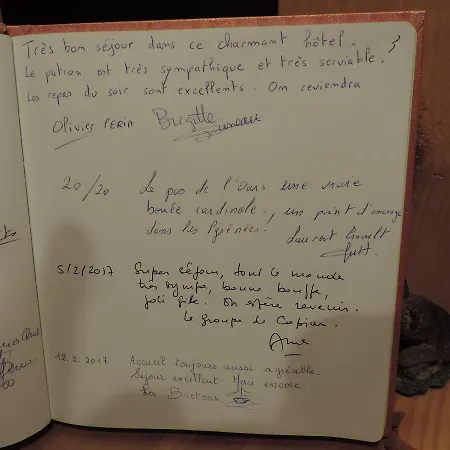 Très bon séjour dans ce charmant hôtel.
Le patron est très sympathique et très serviable.
Les repas du soir sont excellents. On reviendra
3
Olivier PERIN Brigitte
20/20 Le pas de l'Ours une vraie
bouée cardinale, un point d'ancrage
dans les Pyrénées.
Laurent
5/2/2017 Super séjour, tout le monde
très sympa, bonne bouffe,
joli gîte. On espère revenir.
Le groupe de Copian.
12.2.2017 Accueil toujours aussi agréable.
Séjour excellent Merci encore.
Les Bretons